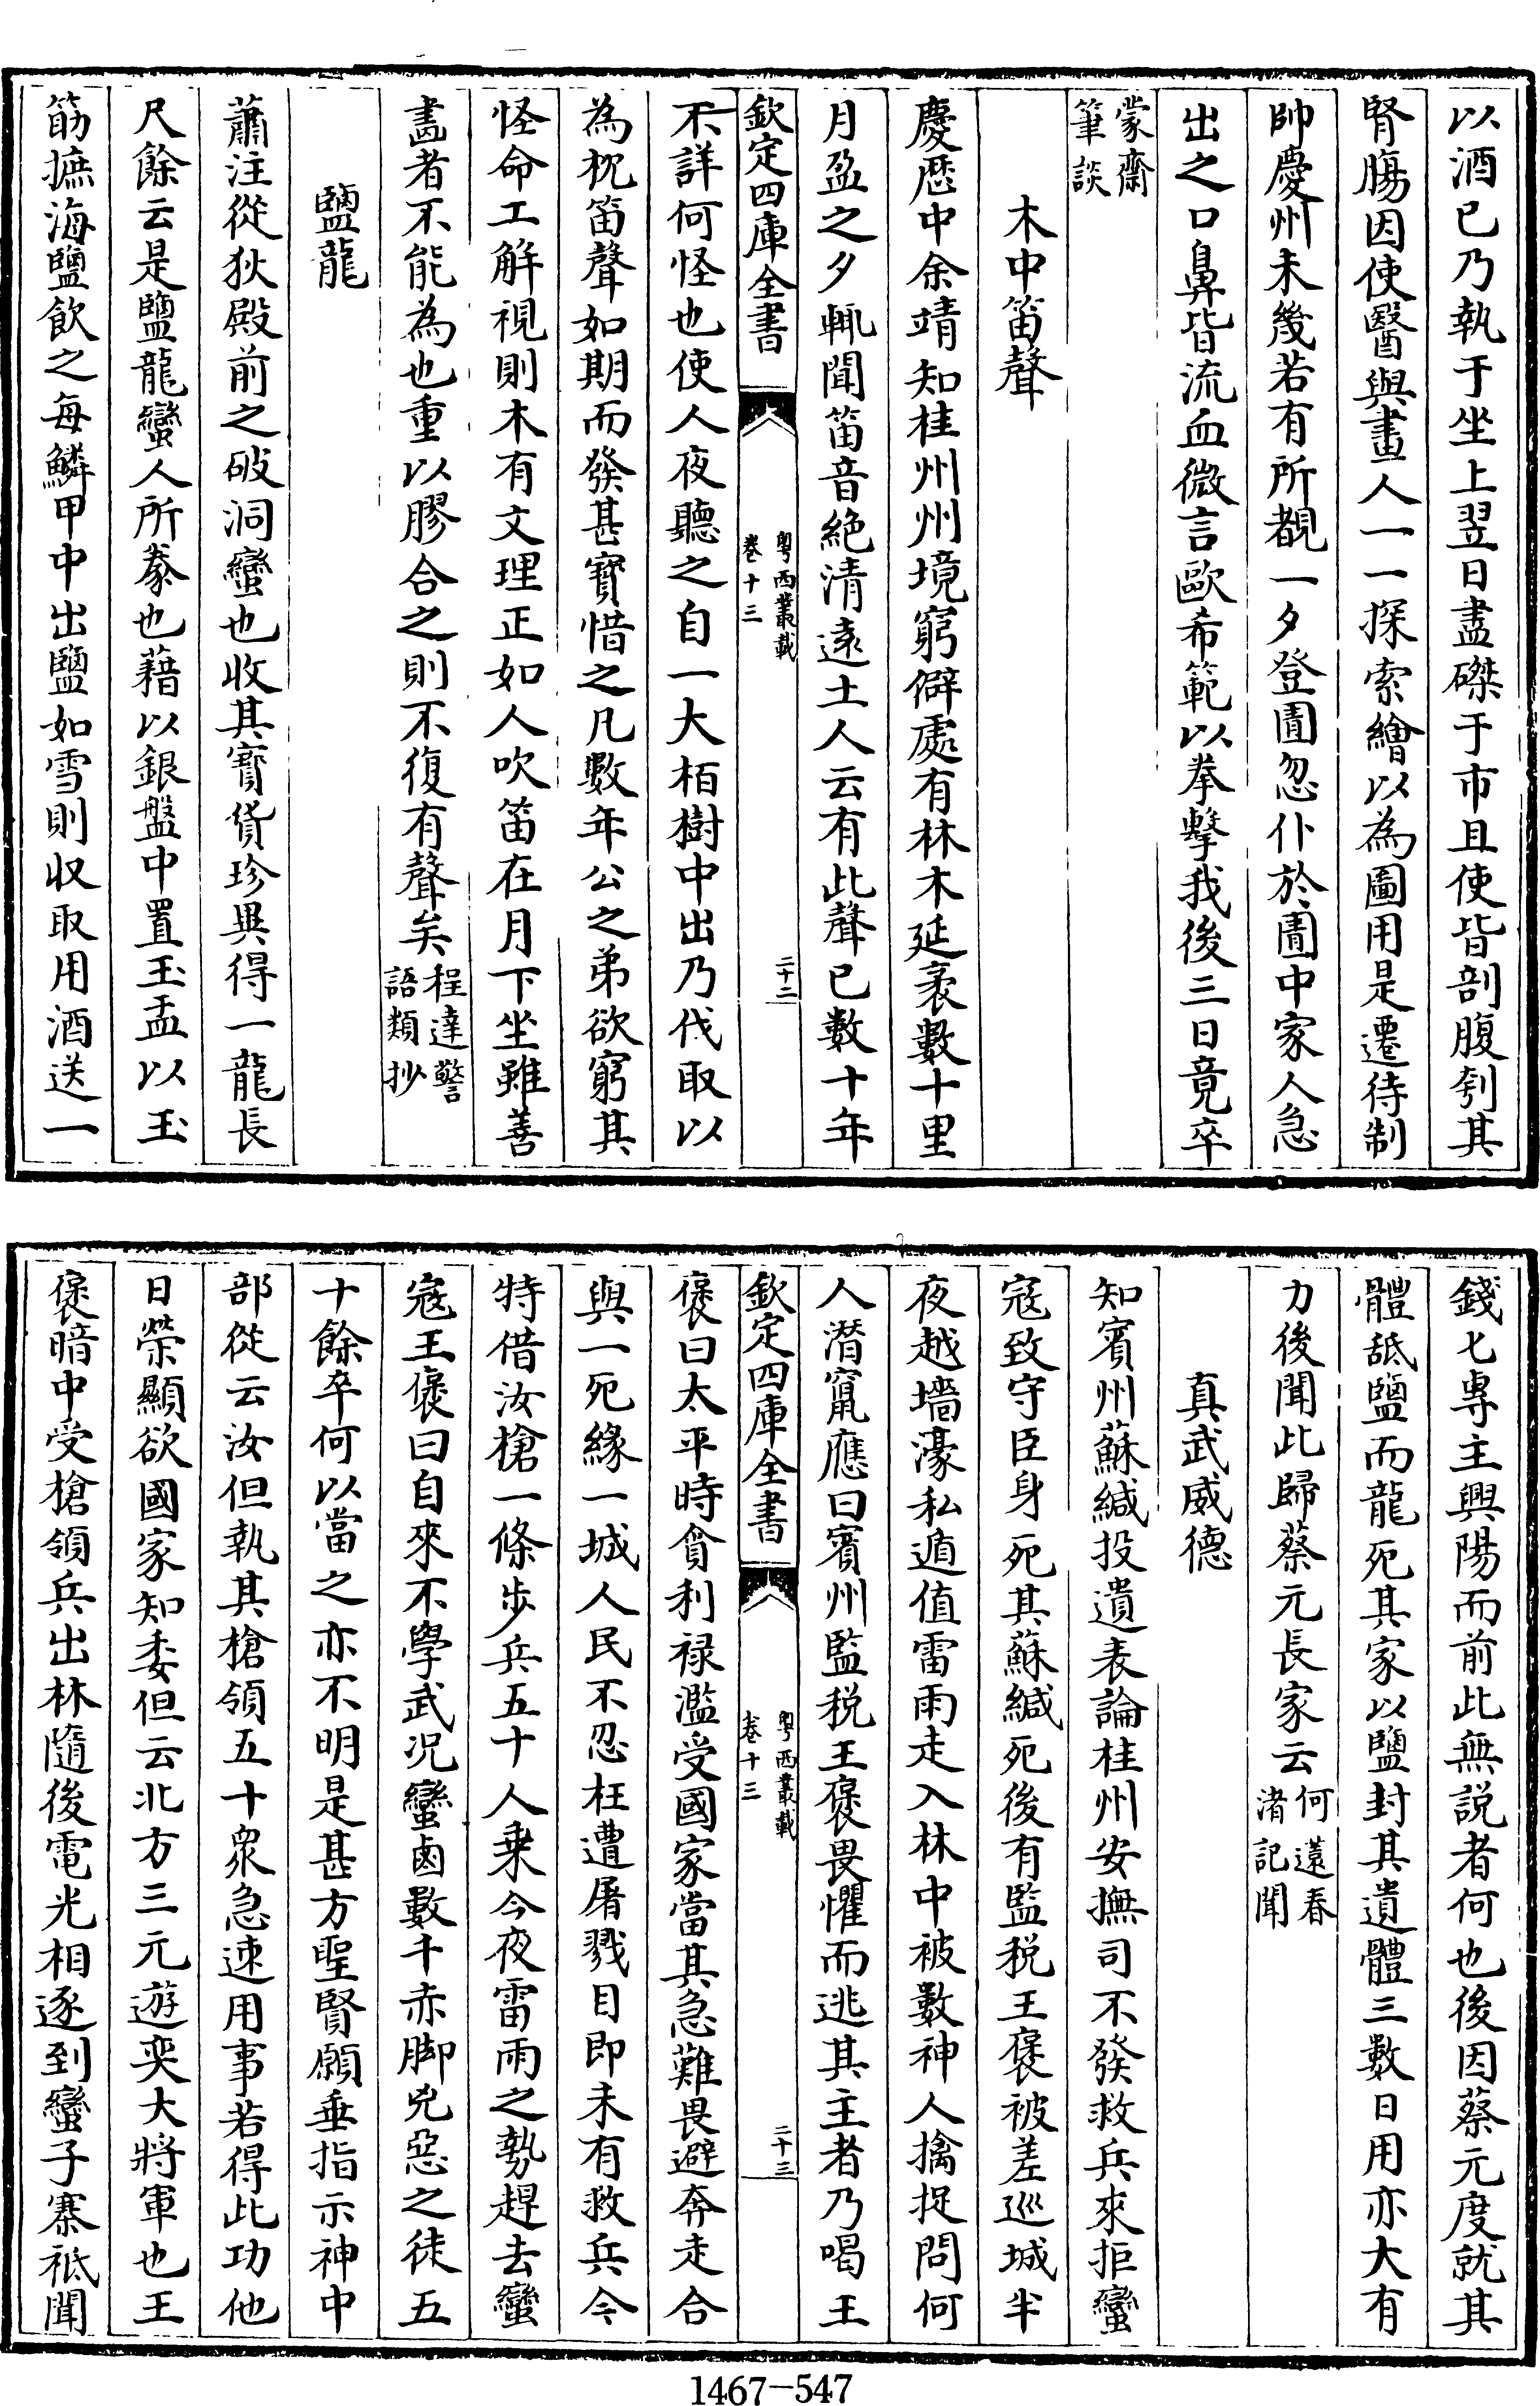 以酒已乃執于坐上翌日盡磔于市且使皆剖腹刳其
腎腸因使醫與畫人一一探索繪以為圖用是遷待制
帥慶州未幾若有所覩一夕登圊忽仆於圊中家人急
出之口鼻皆流血微言歐希範以拳擊我後三日竟卒
蒙齋
筆談
木中笛聲
慶歴中余靖知桂州州境窮僻處有林木延袤數十里
月盈之夕輒聞笛音絶清遠土人云有此聲已數十年
欽定四庫全書
粤西叢載
卷十三
二十二
不詳何怪也使人夜聽之自一大栢樹中出乃伐取以
為枕笛聲如期而發甚寳惜之凡數年公之弟欲窮其
怪命工解視則木有文理正如人吹笛在月下坐雖善
畵者不能為也重以膠合之則不復有聲矣程達警
語類抄
鹽龍
蕭注從狄殿前之破洞蠻也收其寳貨珍異得一龍長
尺餘云是鹽龍蠻人所豢也藉以銀盤中置玉盂以玉
筯摭海鹽飲之每鱗甲中出鹽如雪則収取用酒送一
錢匕專主興陽而前此無説者何也後因蔡元度就其
體舐鹽而龍死其家以鹽封其遺體三數日用亦大有
力後聞此歸蔡元長家云何薳春
渚記聞
真武威德
知賓州蘇緘投遺表論桂州安撫司不發救兵來拒蠻
寇致守臣身死其蘇緘死後有監税王褒被差巡城半
夜越墻濠私遁值雷雨走入林中被數神人擒捉問何
人潛竄應曰賓州監税王褒畏懼而逃其主者乃喝王
欽定四庫全書
粤西叢載
卷十三
二十三
褒曰太平時貪利禄濫受國家當其急難畏避奔走合
與一死緣一城人民不忍枉遭屠戮目即未有救兵今
特借汝槍一條步兵五十人乗今夜雷雨之勢趕去蠻
寇王褒曰自來不學武况蠻鹵數千赤脚兇惡之徒五
十餘卒何以當之亦不明是甚方聖賢願垂指示神中
部從云汝但執其槍領五十衆急速用事若得此功他
日榮顯欲國家知委但云北方三元遊奕大將軍也王
褒暗中受槍領兵出林隨後電光相逐到蠻子寨祗聞
1467-547